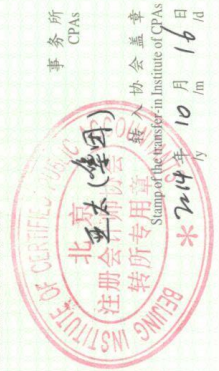 事务所
CPAs
亚太(集团)
转入协会盖章
Stamp of the transfer-in Institute of CPAs
2014年 10月 16日
/y /m /d
BEIJING INSTITUTE OF CERTIFIED PUBLIC
北京
注册会计师协会
转所专用章